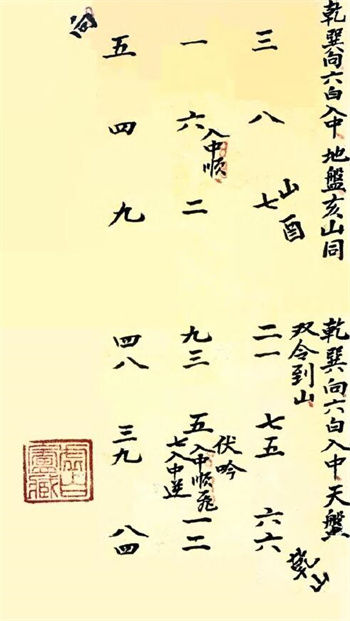 乾巽向六白入中 地盤亥山同
三 八 七
山酉
一 六入中順 二
向
五 四 九
乾巽向六白入中天盤
双令到山
二一 七五 六六
乾山
伏吟
九三 五入中順飛 一二
七入中逆
四八 三九 八四
虛白廬藏